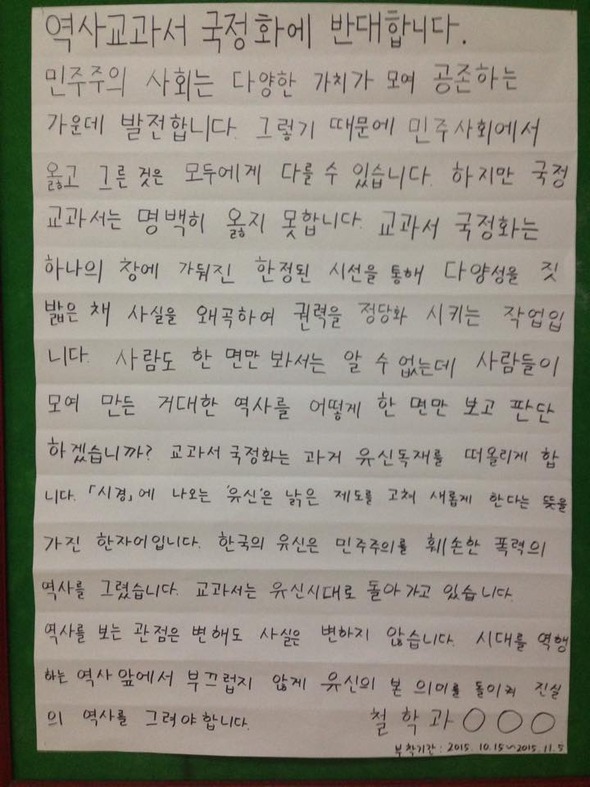 역사교과서 국정화에 반대합니다.
민주주의 사회는 다양한 가치가 모여 공존하는
가운데 발전합니다. 그렇기 때문에 민주사회에서
옳고 그른 것은 모두에게 다를 수 있습니다. 하지만 국정
교과서는 명백히 옳지 못합니다. 교과서 국정화는
하나의 창에 가둬진 한정된 시선을 통해 다양성을 짓
밟은 채 사실을 왜곡하여 권력을 정당화 시키는 작업입
니다. 사람도 한 면만 봐서는 알 수 없는데 사람들이
모여 만든 거대한 역사를 어떻게 한 면만 보고 판단
하겠습니까? 교과서 국정화는 과거 유신독재를 떠올리게 합
니다. 「시경」에 나오는 '유신'은 낡은 제도를 고쳐 새롭게 한다는 뜻을
가진 한자어입니다. 한국의 유신은 민주주의를 훼손한 폭력의
역사를 그렸습니다. 교과서는 유신시대로 돌아가고 있습니다.
역사를 보는 관점은 변해도 사실은 변하지 않습니다. 시대를 역행
하는 역사 앞에서 부끄럽지 않게 유신의 본 의미를 돌이켜 진실
의 역사를 그려야 합니다. 철학과 ○○○
부착기간 : 2015. 10. 15 ~ 2015. 11. 5